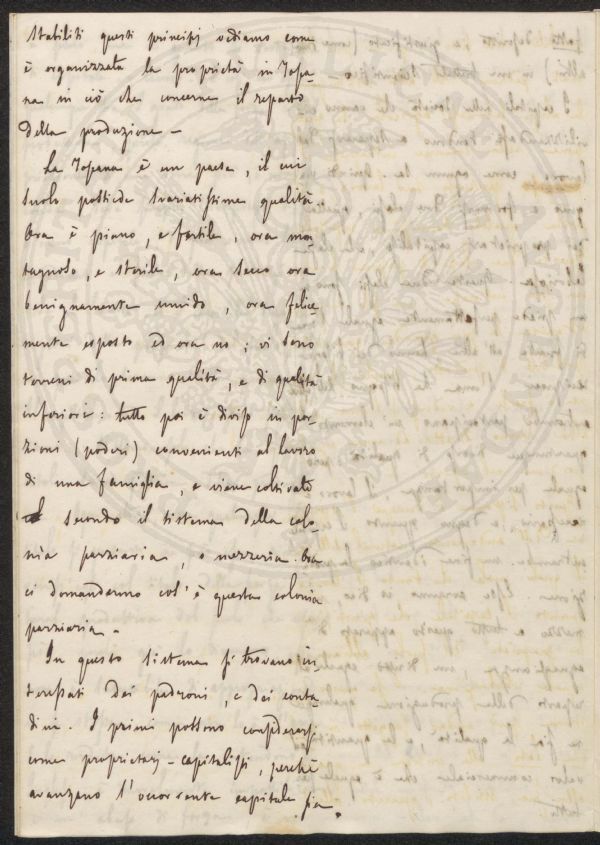 Stabiliti questi principj vediamo come
è organizzata la proprietà in Tosca-
na in ciò che concerne il reparto
della produzione –
La Toscana è un paese, il cui
suolo possiede svariatissime qualità.
Ora è piano, e fertile, ora mon-
tagnoso, e sterile, ora secco ora
benignamente umido, ora felice-
mente esposto ed ora no; vi sono
terreni di prima qualità, e di qualità
inferiori: tutto poi è diviso in por-
zioni (poderi) convenienti al lavoro
di una famiglia, e viene coltivato
secondo il sistema della colo-
nia parziaria, o mezzeria. Ora
ci domanderanno cos'è questa colonia
parziaria –
In questo sistema si trovano in-
teressati dei padroni, e dei conta-
dini. I primi possono considerarsi
come proprietarj-capitalisti, perchè
avanzano l'occorrente capitale sia